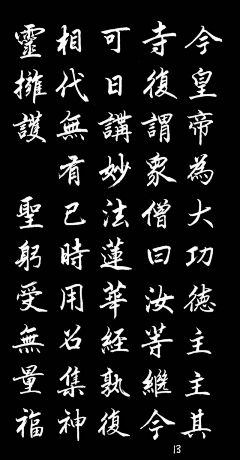 今皇帝為大功徳主主其
寺復謂眾僧曰汝等繼今
可日講妙法蓮華經孰復
相代無有已時用召集神
靈擁護　聖躬受無量福
13